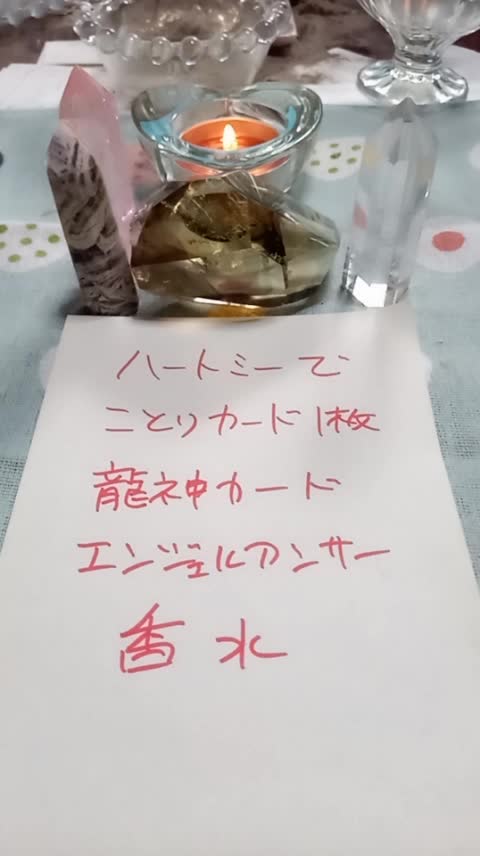 ハートミーで
ことりカード1枚
龍神カード
エンジェルアンサー
香水